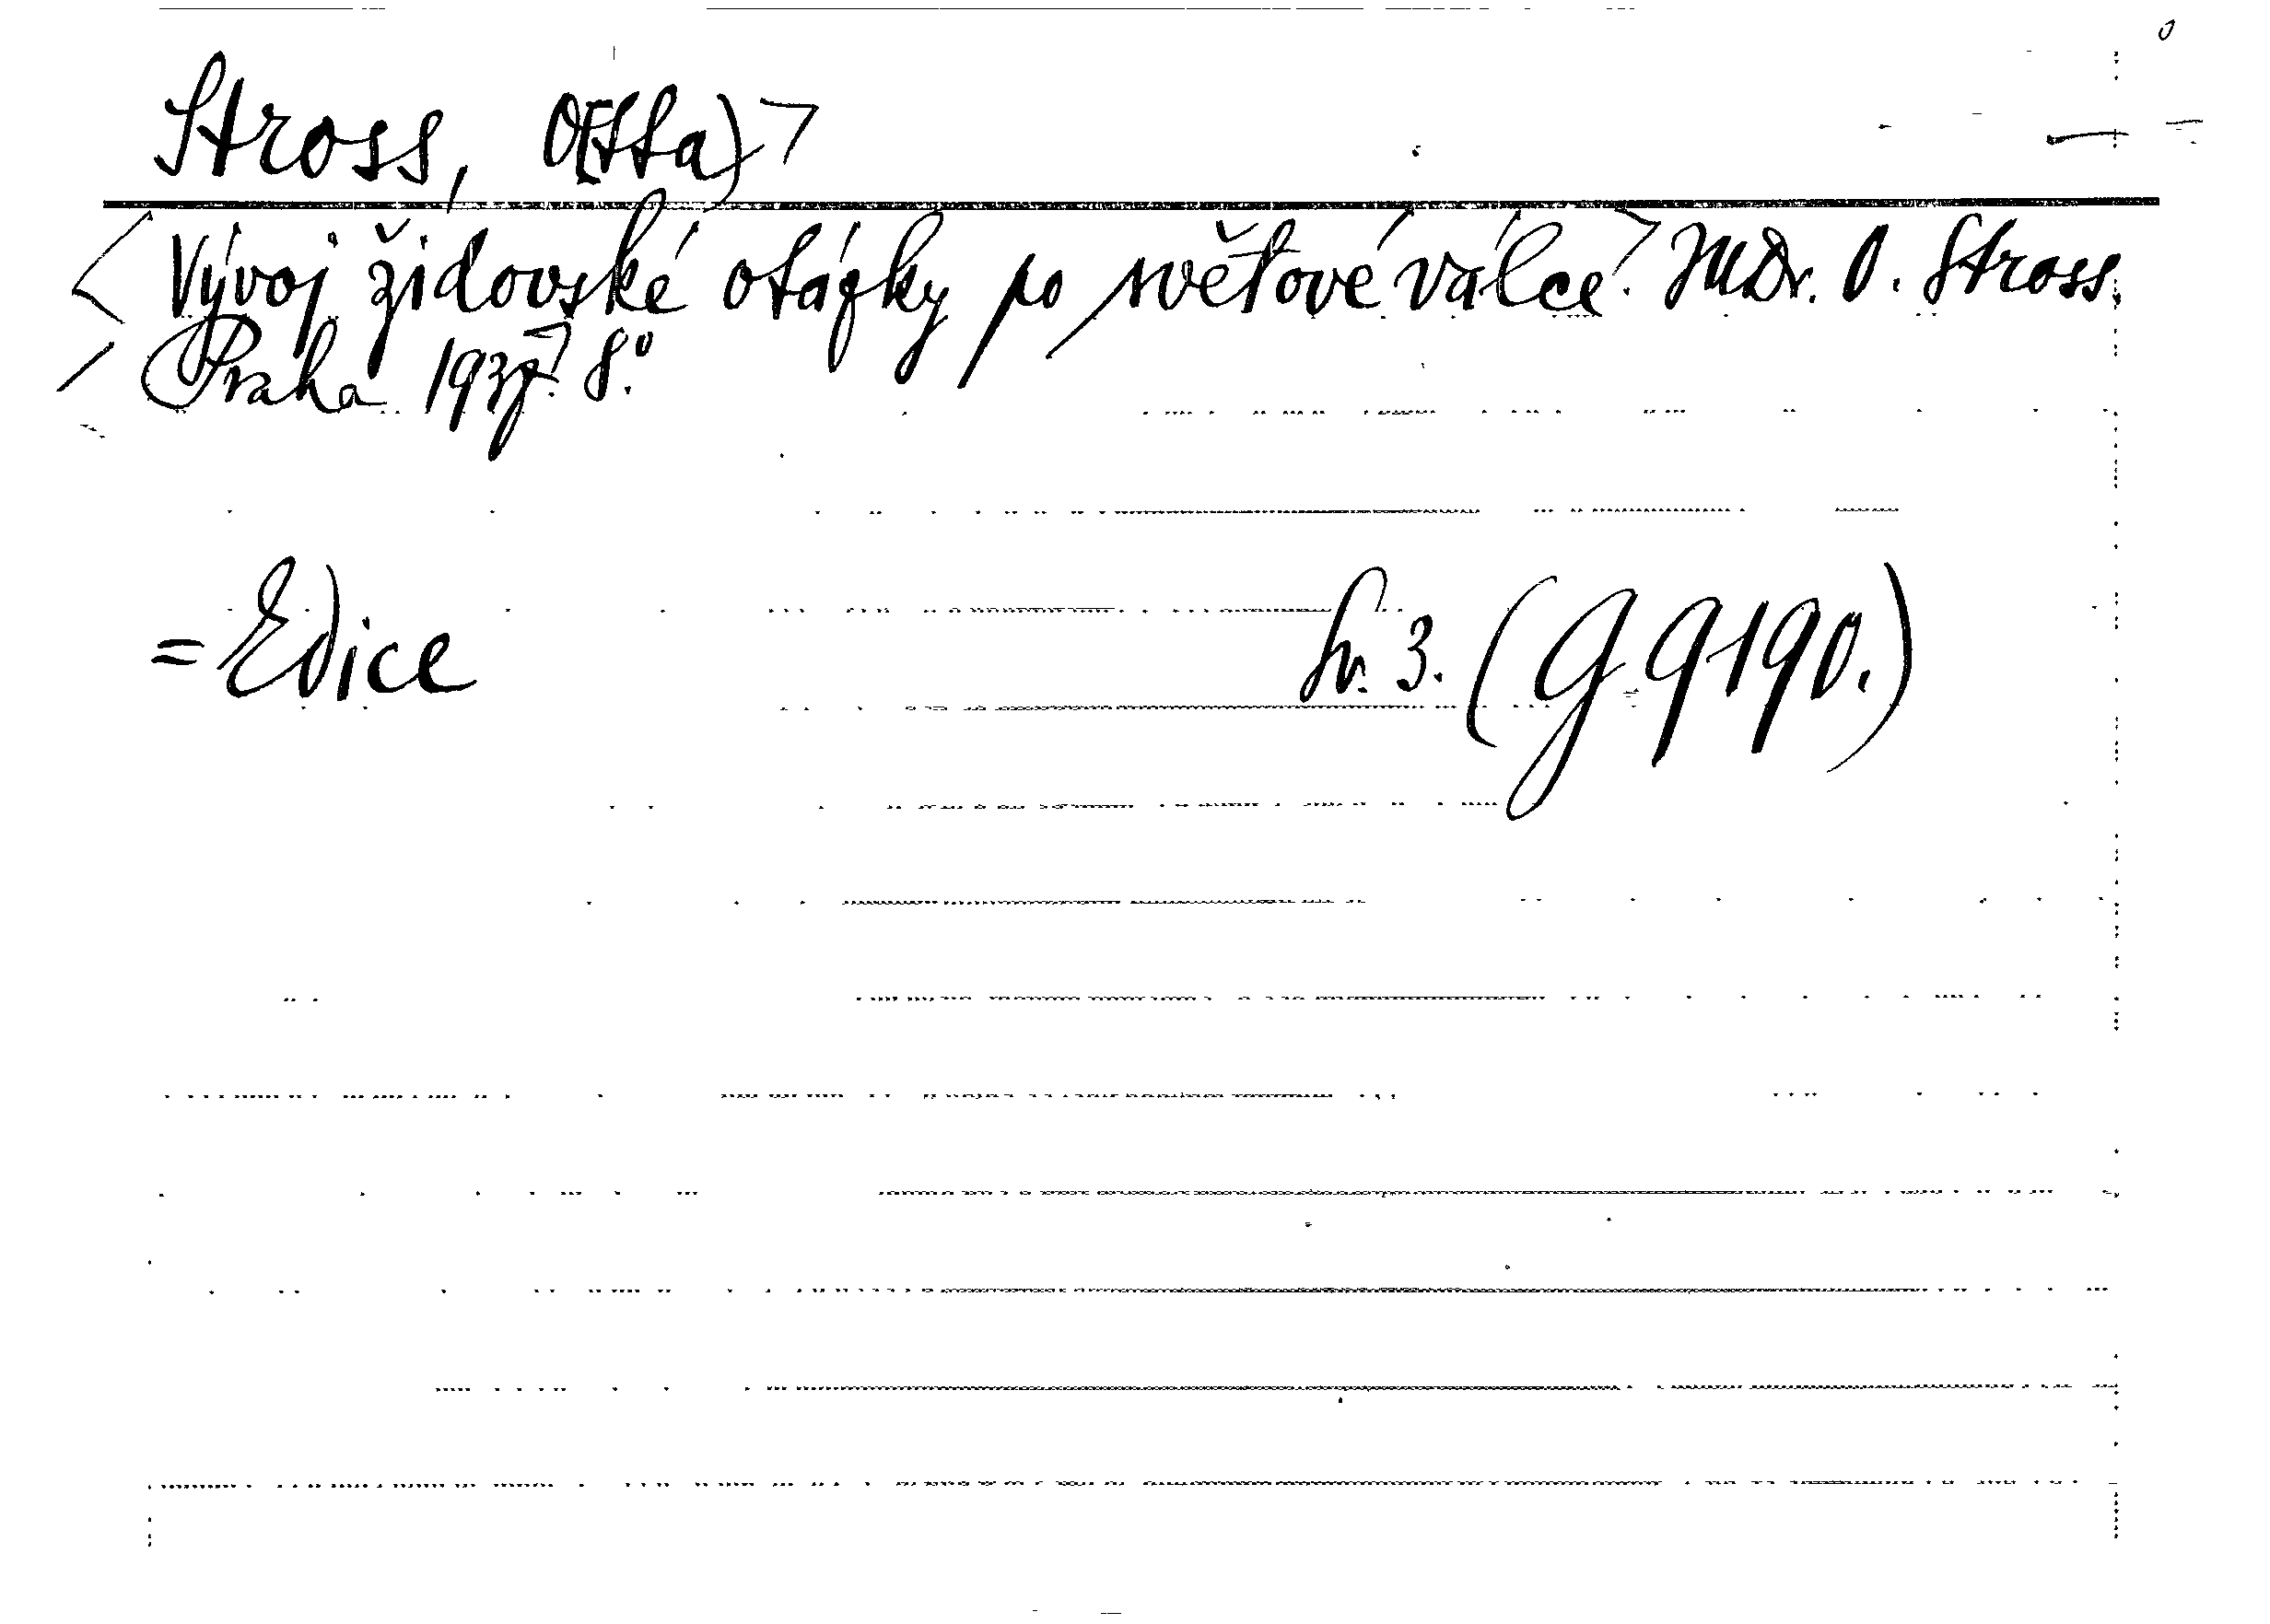 Stross, O(tta)
Vývoj židovské otázky po světové válce. JUDr. O. Stross.
Praha 1937. 8°.
= Edice Sv. 3. (G 9190.)